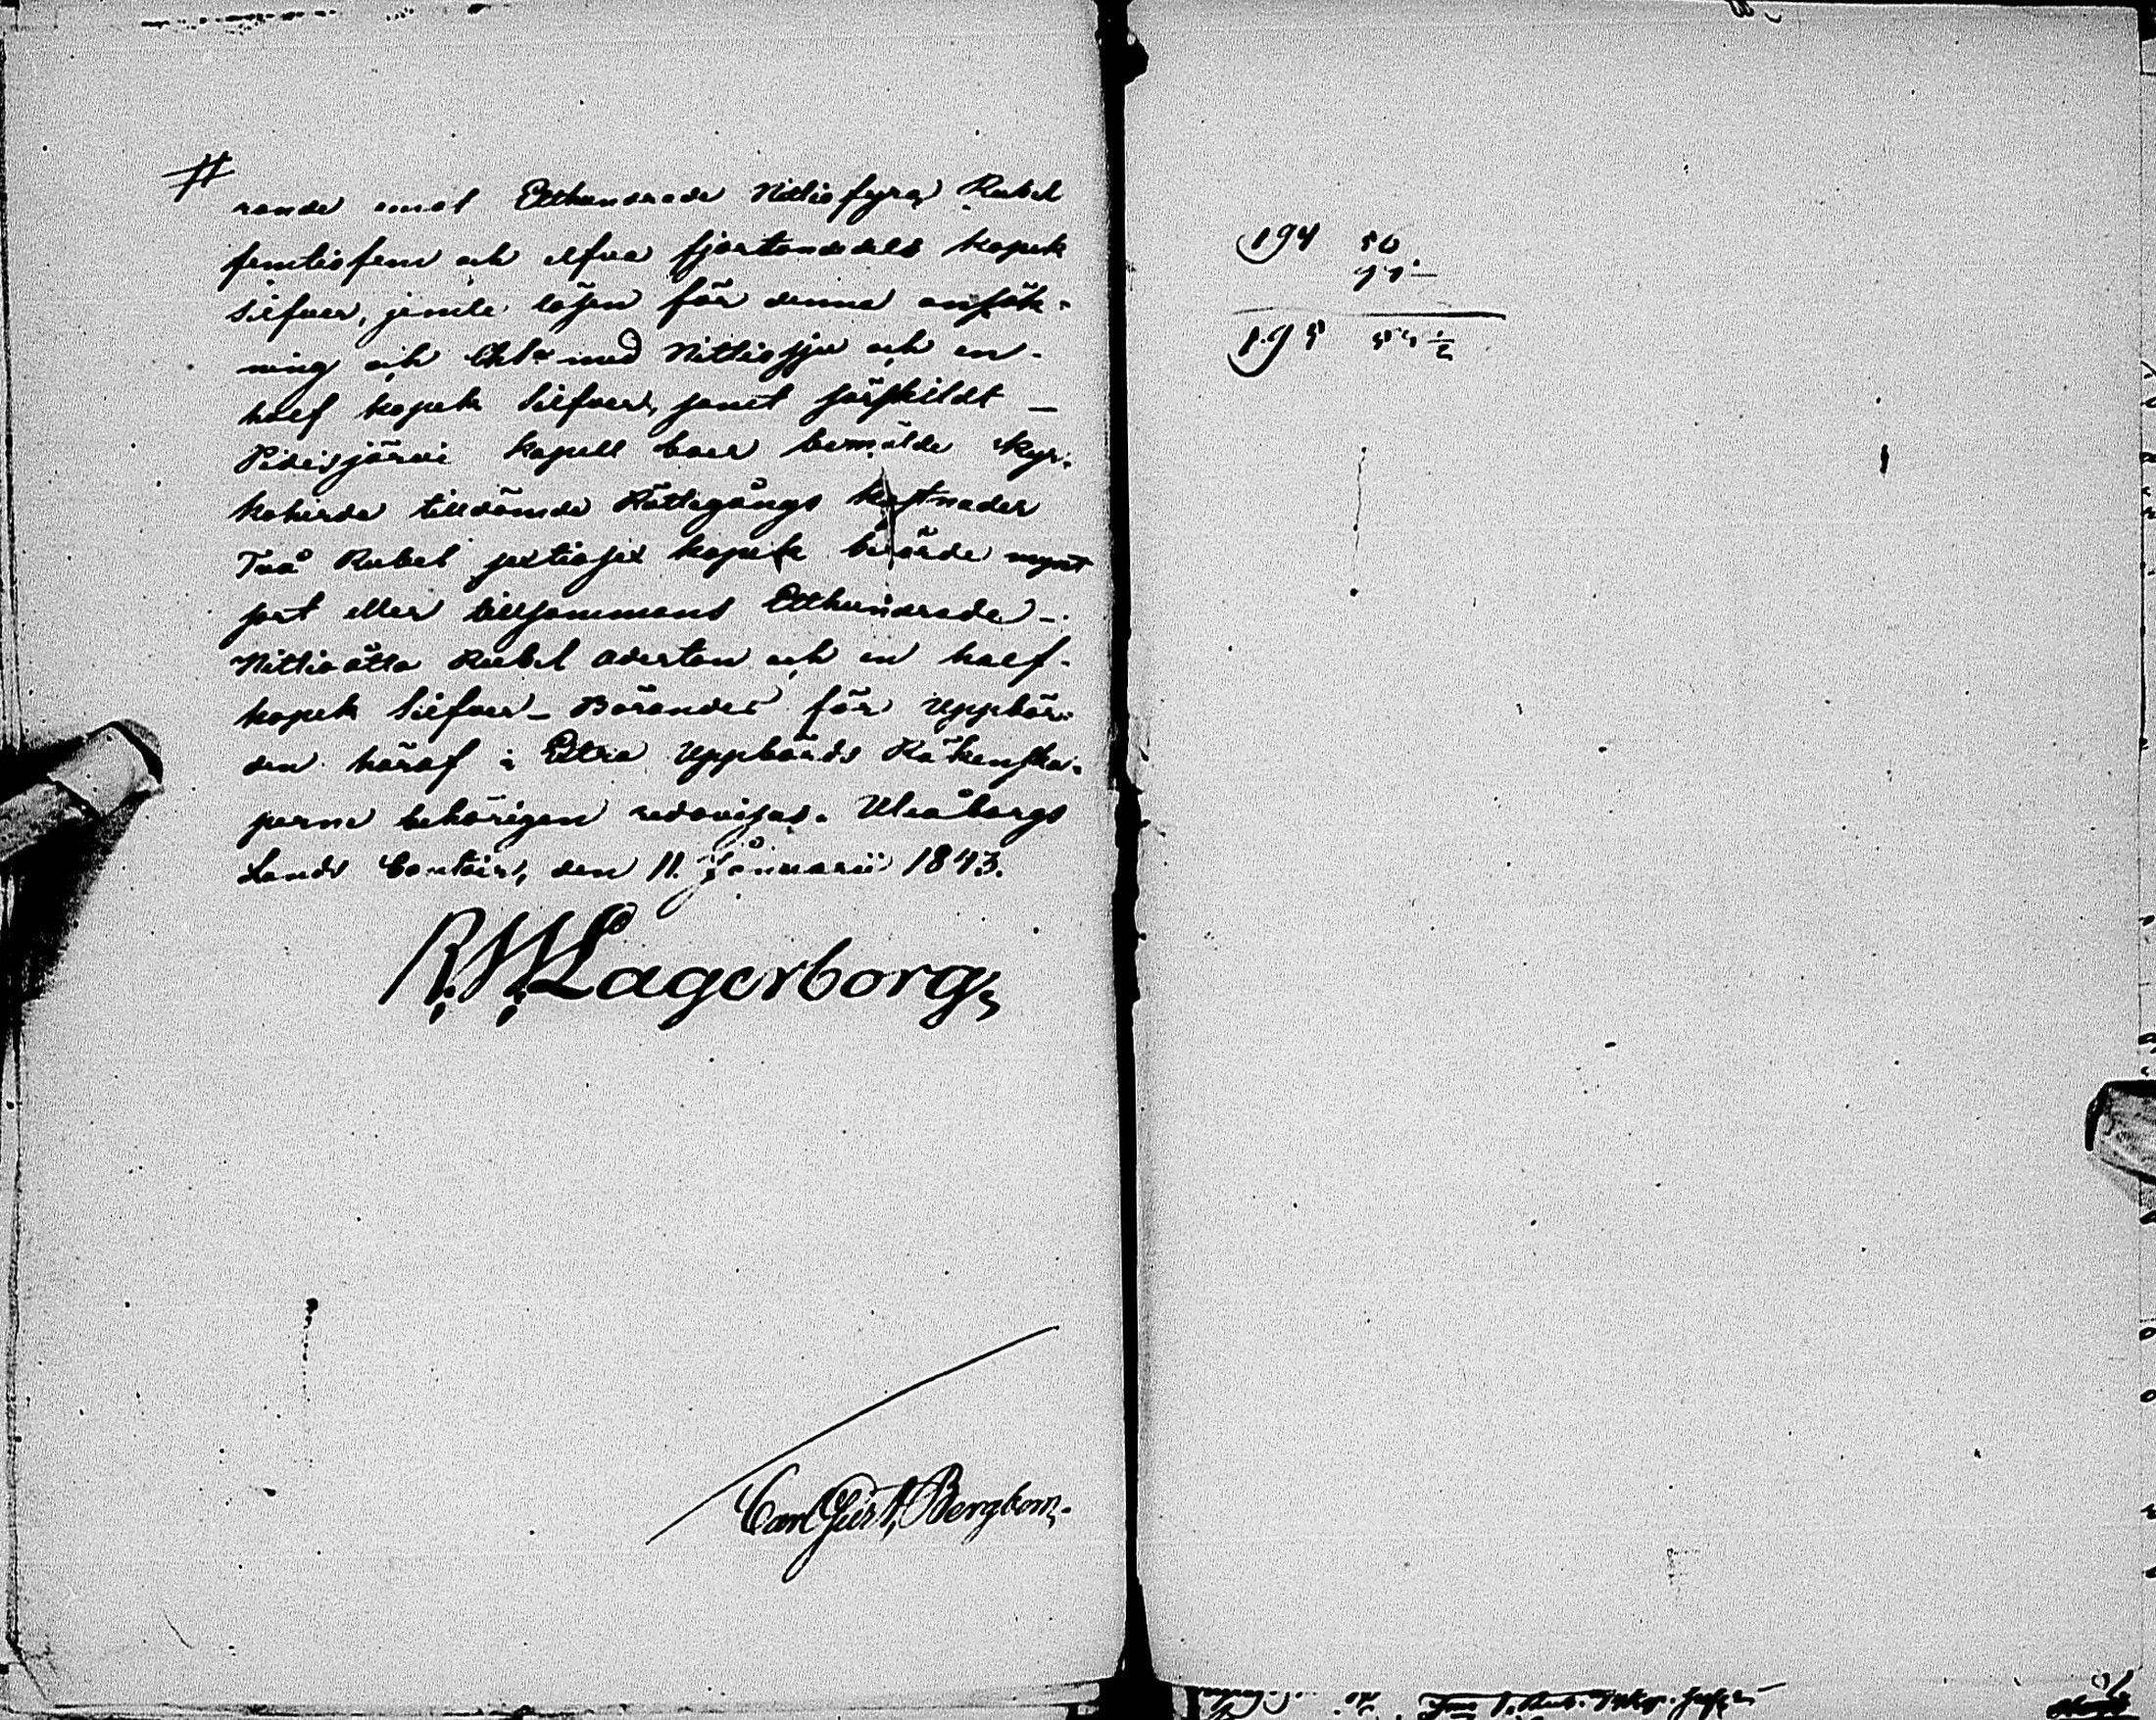 #
rande emot Etthundrade Nittiofyra Rubel
femtiofem och elfva fjortondedels kopek
Silfver, jemte lösen för denna ansök-
ning och Chta med Nittiosju och en
half kopek Silfver, samt särskildt —
Pidisjärvi kapell boer bemälde Kyr-
koherde tilldömde Rättegångs kostnader
Två Rubel sextiosex kopek berörde mynt
sort eller tillsammans Etthundrade —
Nittioåtta Rubel aderton och en half
kopek Silfver — Börandes för Uppbör-
den häraf i Extra Uppbörds Räkenska-
perne behörigen redovisas. Uleåborgs
Lands Contoir, den 11. Januarii 1843.
R. W. Lagerborg
Carl Gust. Bergbom.
194 50
195